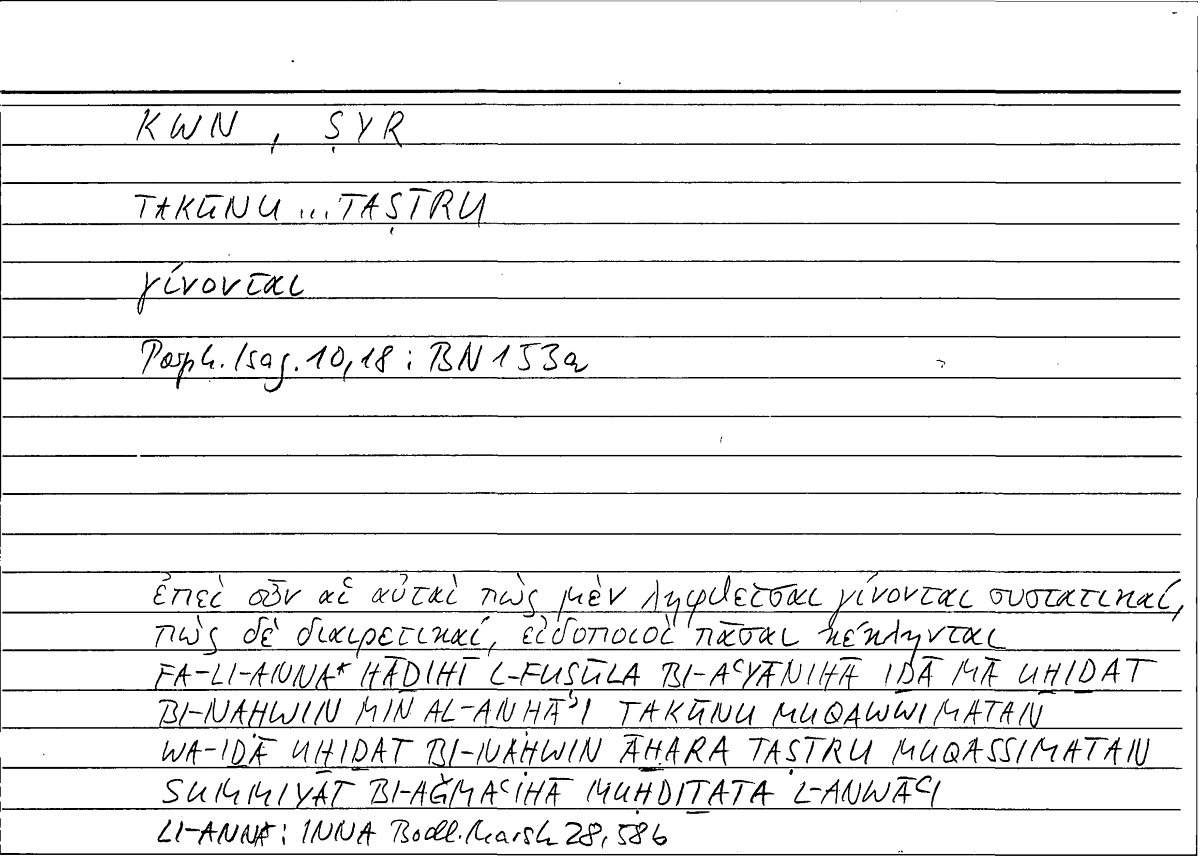 KWN , ṢYR
TAKŪNU ... TAṢĪRU
γίνονται
Porph. Isag. 10,18 : BN 153a
ἐπεὶ οὖν αἱ αὐταὶ πὼς μὲν ληφθεῖσαι γίνονται συστατικαί,
πὼς δὲ διαιρετικαί, εἰδοποιοὶ πᾶσαι κέκληνται
FA-LI-ANNA* HĀḎIHĪ L-FUṢŪLA BI-AʿYĀNIHĀ IḎĀ MĀ UḪIḎAT
BI-NAḤWIN MIN AL-ANḤĀʾI TAKŪNU MUQAWWIMATAN
WA-IḎĀ UḪIḎAT BI-NAḤWIN ĀḪARA TAṢĪRU MUQASSIMATAN
SUMMIYAT BI-AǦMAʿIHĀ MUḤDIṮATA L-ANWĀʿI
LI-ANNA : INNA Bodl. Marsh 28, 58b